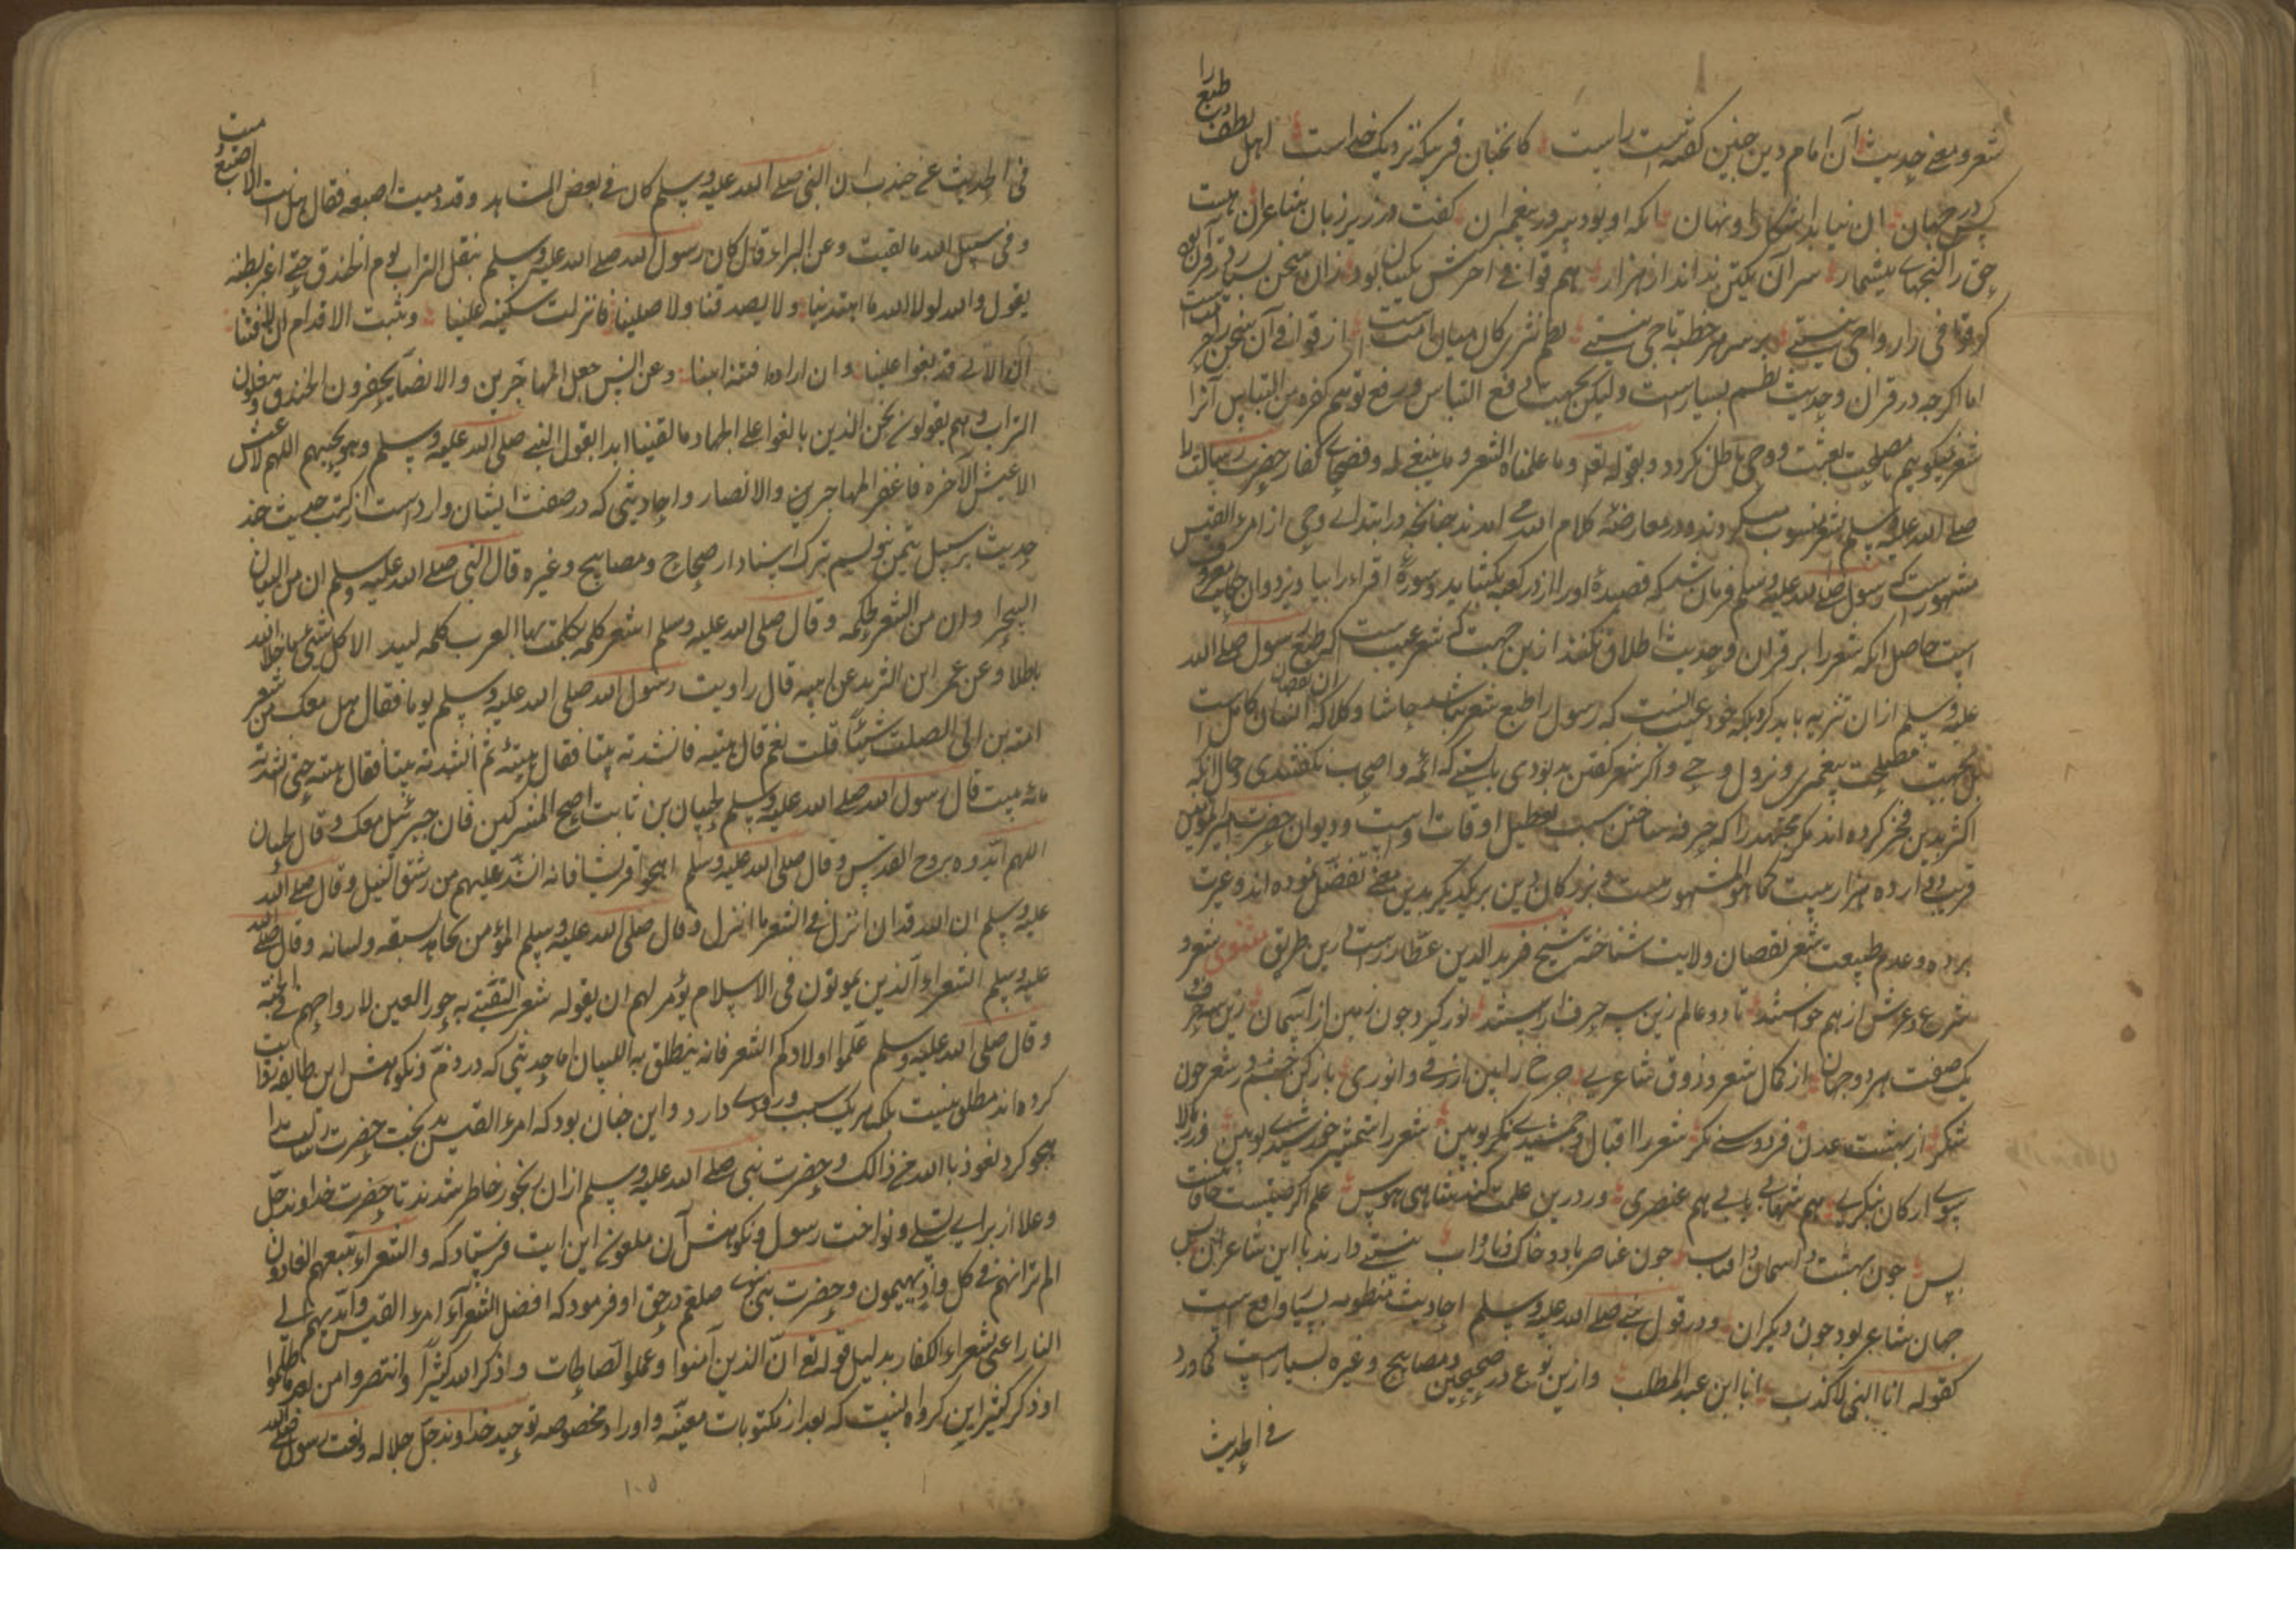 شعر و معنی حدیث آن امام دین چنین گفته است راست کانچنان قربیکه نزدیک خداست اهل لطف و طبع را
در جهان ان نیاید اشکارا و نهان انکه او بود پیرو پیغمبران گفت در زیر زبان شاعران هست
حق را گنجهای بیشمار سر آن یکتن نداند از هزار هم قوافی اخرش یکسان بود زان سخن بسیار در قرآن بود
گر قوافی را رواجی نیستی بر سر هر خطبه تاجی نیستی نظم نثری کان میان امت است از قوافی آن سخن را
اما اگرچه در قرآن و حدیث نظم بسیارست ولیکن بجهت دفع التباس و رفع توهم کفره من التباس آنرا
شعر نیکوییم تا مصلحت بعثت و وحی باطل نگردد و بقوله تعالی و ما علمناه الشعر و ما ینبغی له و فصحای کفار حضرت رسالت را
صلی الله علیه وسلم بشعر منسوب میکردند و در معارضهٔ کلام الله می امدند چنانچه در ابتدای وحی از امرء القیس
مشهور ست که رسول صلی الله علیه وسلم فرمان شد که قصیدهٔ او را از در کعبه بکشاید و سورهٔ اقراء را بیاویزد و ان حکایت معروف
است حاصل انکه شعر را بر قرآن و حدیث اطلاق نکنند ازین جهت که شعر عیب است که طبع رسول صلی الله
علیه وسلم ازان تنزیه باید کرد بلکه خود عیب انست که رسول را طبع شعر نباشد حاشا و کلا که ان نقصان انسان کامل است
بل بجهت مصلحت پیغمبری و نزول وحی و اگر شعر گفتن بد بودی بایستی که ائمه و اصحاب نگفتندی و حال انکه
اکثر بدین فخر کرده اند مگر مجتهد را که حرفه ساختن سبب تعطیل اوقات اوست و دیوان حضرت امیر المومنین
قریب دوازده هزار بیت کما هو المشهور ست و بزرگان دین بر یکدیگر بدین معنی تفضل نموده اند و غیرت
برده و عدم طبیعت شعر نقصان ولایت شناخته شیخ فرید الدین عطار راست درین طریق مثنوی شعر و
شرع و عرش از هم خواستند تا دو عالم زین سه حرف آراستند نور گیرد چون زمین از آسمان زین سه حرف
یک صفت هر دو جهان از کمال شعر و ذوق شاعری چرخ را بین ازرقی و انوری باز کن چشم و ز شعر چون
شکر از بهشت عدن فردوسی نگر شعر را اقبال و جمشیدی نگر و بین شعر را شمس خورشیدی ببین ور ز بالا
سوی ارکان بنگری هم شهابی یابی هم عنصری ور درین علمت کند شاهی هوس علم اگر چینست خاقانیت
بس چون بهشت و آسمان و آفتاب چون عناصر باد و خاک و نار و آب نسبتی دارند با این شاعران پس
جهان شاعر بود چون دیگران و در قول نبی صلی الله علیه وسلم احادیث منظومه بسیار واقع است
کقوله انا النبی لا کذب انا ابن عبد المطلب و ازین نوع در صحیحین و مصابیح و غیره بسیار است کما ورد
فی الحدیث
فی الحدیث عن جندب ان النبی صلی الله علیه وسلم کان فی بعض المشاهد و قد دمیت اصبعه فقال هل انت الا اصبع دمیت
و فی سبیل الله ما لقیت و عن البراء قال کان رسول الله صلی الله علیه وسلم ینقل التراب یوم الخندق حتی اغبر بطنه
یقول والله لولا الله ما اهتدینا ولا تصدقنا ولا صلینا فانزلن سکینه علینا و ثبت الاقدام ان لاقینا
ان الاولی قد بغوا علینا و ان ارادوا فتنة ابینا و عن انس جعل المهاجرین و الانصار یحفرون الخندق و ینقلون
التراب و هم یقولون نحن الذین بایعوا علی الجهاد ما بقینا ابدا یقول النبی صلی الله علیه وسلم و هو یجیبهم اللهم لا عیش
الا عیش الآخره فاغفر المهاجرین والانصار و احادیثی که در صفت ایشان وارد است از کتب حدیث چند
حدیث بر سبیل تیمن بنویسیم بترک اسناد از صحاح و مصابیح و غیره قال النبی صلی الله علیه وسلم ان من البیان
لسحرا و ان من الشعر لحکمه و قال صلی الله علیه وسلم اشعر کلمه تکلمت بها العرب کلمه لبید الا کل شیء ما خلا الله
باطلا و عن عمر ابن الشرید عن ابیه قال راویت رسول الله صلی الله علیه وسلم یوما فقال هل معک من شعر
امیه بن ابی الصلت شیئا قلت نعم قال هیه فانشدته بیتا فقال هیه ثم انشدته بیتا فقال هیه حتی انشدته
مائه بیت قال رسول الله صلی الله علیه وسلم لحسان بن ثابت اهج المشرکین فان جبرئیل معک و قال لحسان
اللهم ایده بروح القدس و قال صلی الله علیه وسلم اهجوا قریشا فانه اشد علیهم من رشق النبل و قال صلی الله
علیه وسلم ان الله قد انزل فی الشعر ما انزل و قال صلی الله علیه وسلم المؤمن یجاهد بسیفه و لسانه و قال صلی الله
علیه وسلم الشعراء الذین یموتون فی الاسلام یؤمر لهم ان یقوله شعر التغنی به حور العین لازواجهم فی الجنه
و قال صلی الله علیه وسلم علموا اولادکم الشعر فانه ینطلق به اللسان اما حدیثی که در ذم و نکوهش این طایفه روایت
کرده اند مطلق نیست بلکه هر یک سبب ورودی دارد و این چنان بود که امرء القیس بدبخت حضرت رسالت را
هجو کرد نعوذ بالله من ذالک و حضرت نبی صلی الله علیه وسلم ازان رنجور خاطر شدند تا حضرت خداوند جل
و علا از برای تسلی و نواخت رسول و نکوهش آن ملعون این ایت فرستاد که و الشعراء یتبعهم الغاوون
الم تر انهم فی کل واد یهیمون و حضرت نبی صلعم در حق او فرمود که افضل الشعراء امرء القیس و قایدیهم الی
النار اعنی شعراء الکفار بدلیل قوله تع ان الذین آمنوا و عملوا الصالحات و اذکر الله کثیرا و انتصروا من بعد ما ظلموا
او ذکر کثیر این گروه انست که بعد از مکتوبات معینه و اوراد مخصوصه توحید خداوند جل جلاله و نعت رسول صلی الله
۱۰۵